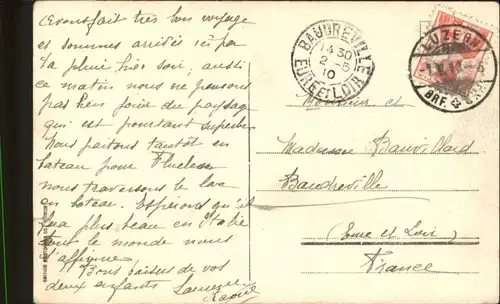 Nous avons fait très bon voyage
et sommes arrivés ici par
la pluie hier soir, aussi
ce matin nous ne pouvons
pas bien jouir du paysage
qui est pourtant superbe
Nous partons tantôt en
bateau pour Fluelen
nous traversons le lac
en bateau. Espérons qu'il
fera plus beau en Italie
tout le monde nous
l'affirme.
Bons baisers de vos
deux enfants
Raoul
BAUDREVILLE
14 30
2 - 5
10
EURE ET LOIR
LUZERN
BRF.
Monsieur et
Madame Bauvillard
Baudreville
(Eure et Loir)
France